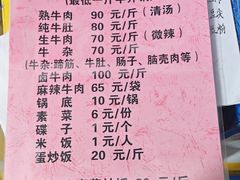 熟牛肉 90 元/斤（清汤）
纯牛肚 80 元/斤
生牛肉 70 元/斤（微辣）
牛 杂 70 元/斤
(牛杂:蹄筋、牛肚、肠子、脑壳肉等)
卤牛肉 100 元/斤
麻辣牛肉 65 元/袋
锅 底 10 元/锅
素 菜 6 元/份
碟 子 1 元/个
米 饭 1 元/人
蛋炒饭 20 元/斤